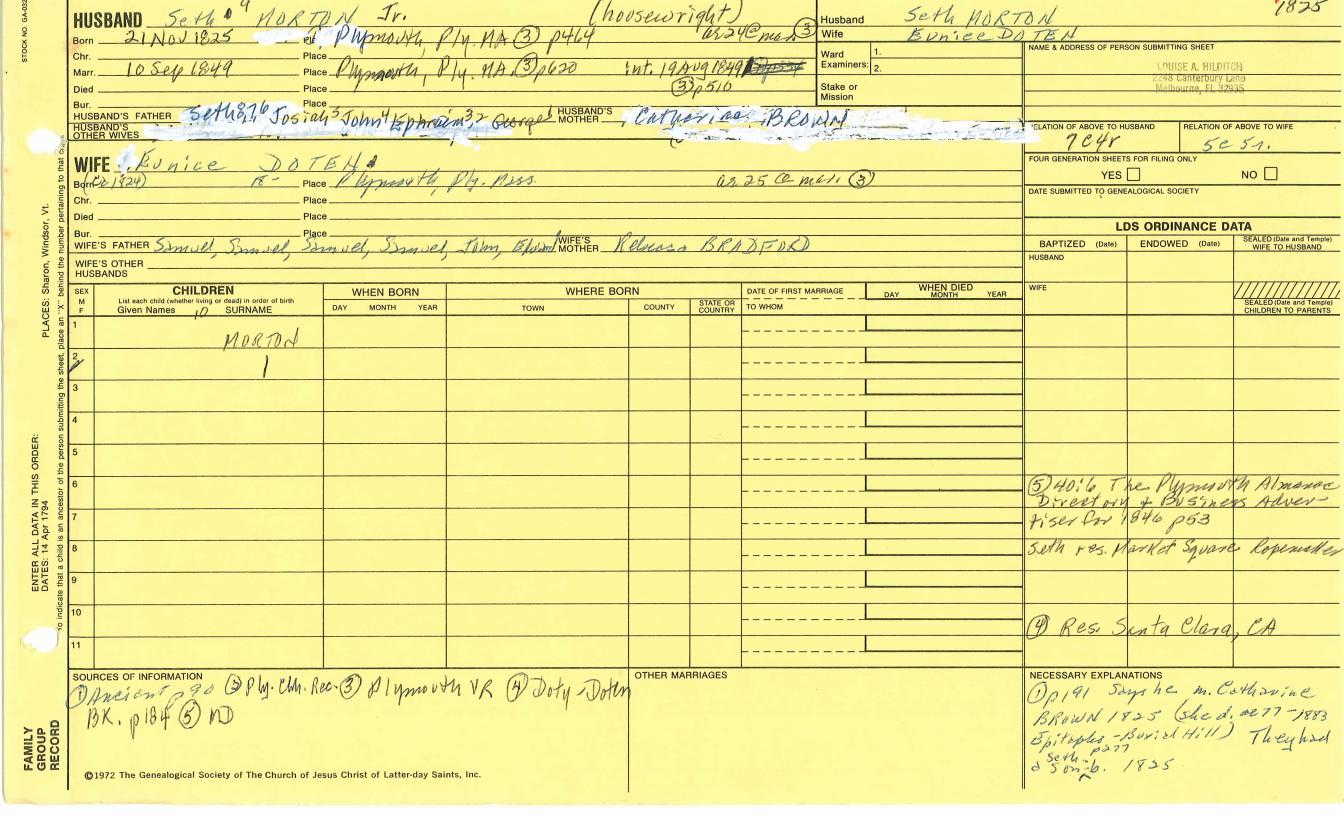 STOCK NO. GA-032
HUSBAND Seth 9 MORTON Jr. (housewright)
Husband Seth MORTON 1825
Wife Eunice DOTEN
Born 21 Nov 1825 Place Plymouth, Ply. MA (3) p464 as 24 @ mar. (3)
Chr. Place
Marr. 10 Sep 1849 Place Plymouth, Ply. MA. (3) p620 int. 19 Aug 1849
(3) p510
Died Place
Bur. Place
Ward Examiners: 1. 2.
Stake or Mission
NAME & ADDRESS OF PERSON SUBMITTING SHEET
LOUISE A. HILDITCH
2248 Canterbury Lane
Melbourne, FL 32935
HUSBAND'S FATHER Seth 8,7,6 Josiah 5 John 4 Ephraim 3,2 George 1 HUSBAND'S MOTHER Catharine BROWN
HUSBAND'S OTHER WIVES
RELATION OF ABOVE TO HUSBAND 7C4r
RELATION OF ABOVE TO WIFE 5C5r.
WIFE Eunice DOTEN
Born (ca 1824) 18- Place Plymouth, Ply. Mass. as 25 @ mar. (3)
Chr. Place
Died Place
Bur. Place
FOUR GENERATION SHEETS FOR FILING ONLY
YES NO
DATE SUBMITTED TO GENEALOGICAL SOCIETY
WIFE'S FATHER Samuel, Samuel, Samuel, Samuel, John, Edward WIFE'S MOTHER Rebecca BRADFORD
WIFE'S OTHER HUSBANDS
LDS ORDINANCE DATA
BAPTIZED (Date) ENDOWED (Date) SEALED (Date and Temple) WIFE TO HUSBAND
HUSBAND
WIFE
SEALED (Date and Temple) CHILDREN TO PARENTS
SEX M F
CHILDREN
List each child (whether living or dead) in order of birth
Given Names SURNAME
WHEN BORN
DAY MONTH YEAR
WHERE BORN
TOWN COUNTY STATE OR COUNTRY
DATE OF FIRST MARRIAGE
TO WHOM
WHEN DIED
DAY MONTH YEAR
1 MORTON
2
3
4
5
6
7
8
9
10
11
(5) 40:6 The Plymouth Almanac
Directory & Business Adver-
tiser for 1846 p53
Seth res. Market Square Ropemaker
(4) Res. Santa Clara, CA
SOURCES OF INFORMATION
(1) Ancient p90 (2) Ply. Chh. Rec. (3) Plymouth VR (4) Doty-Doten
BK. p184 (5) ND
OTHER MARRIAGES
NECESSARY EXPLANATIONS
(1) p191 Says he m. Catharine
BROWN 1825 (she d. ae 77-1883
Epitaphs-Burial Hill) They had
p277
Seth-
a son b. 1825
©1972 The Genealogical Society of The Church of Jesus Christ of Latter-day Saints, Inc.
FAMILY GROUP RECORD
ENTER ALL DATA IN THIS ORDER:
DATES: 14 Apr 1794
PLACES: Sharon, Windsor, Vt.
To indicate that a child is an ancestor of the person submitting the sheet, place an "X" behind the number pertaining to that